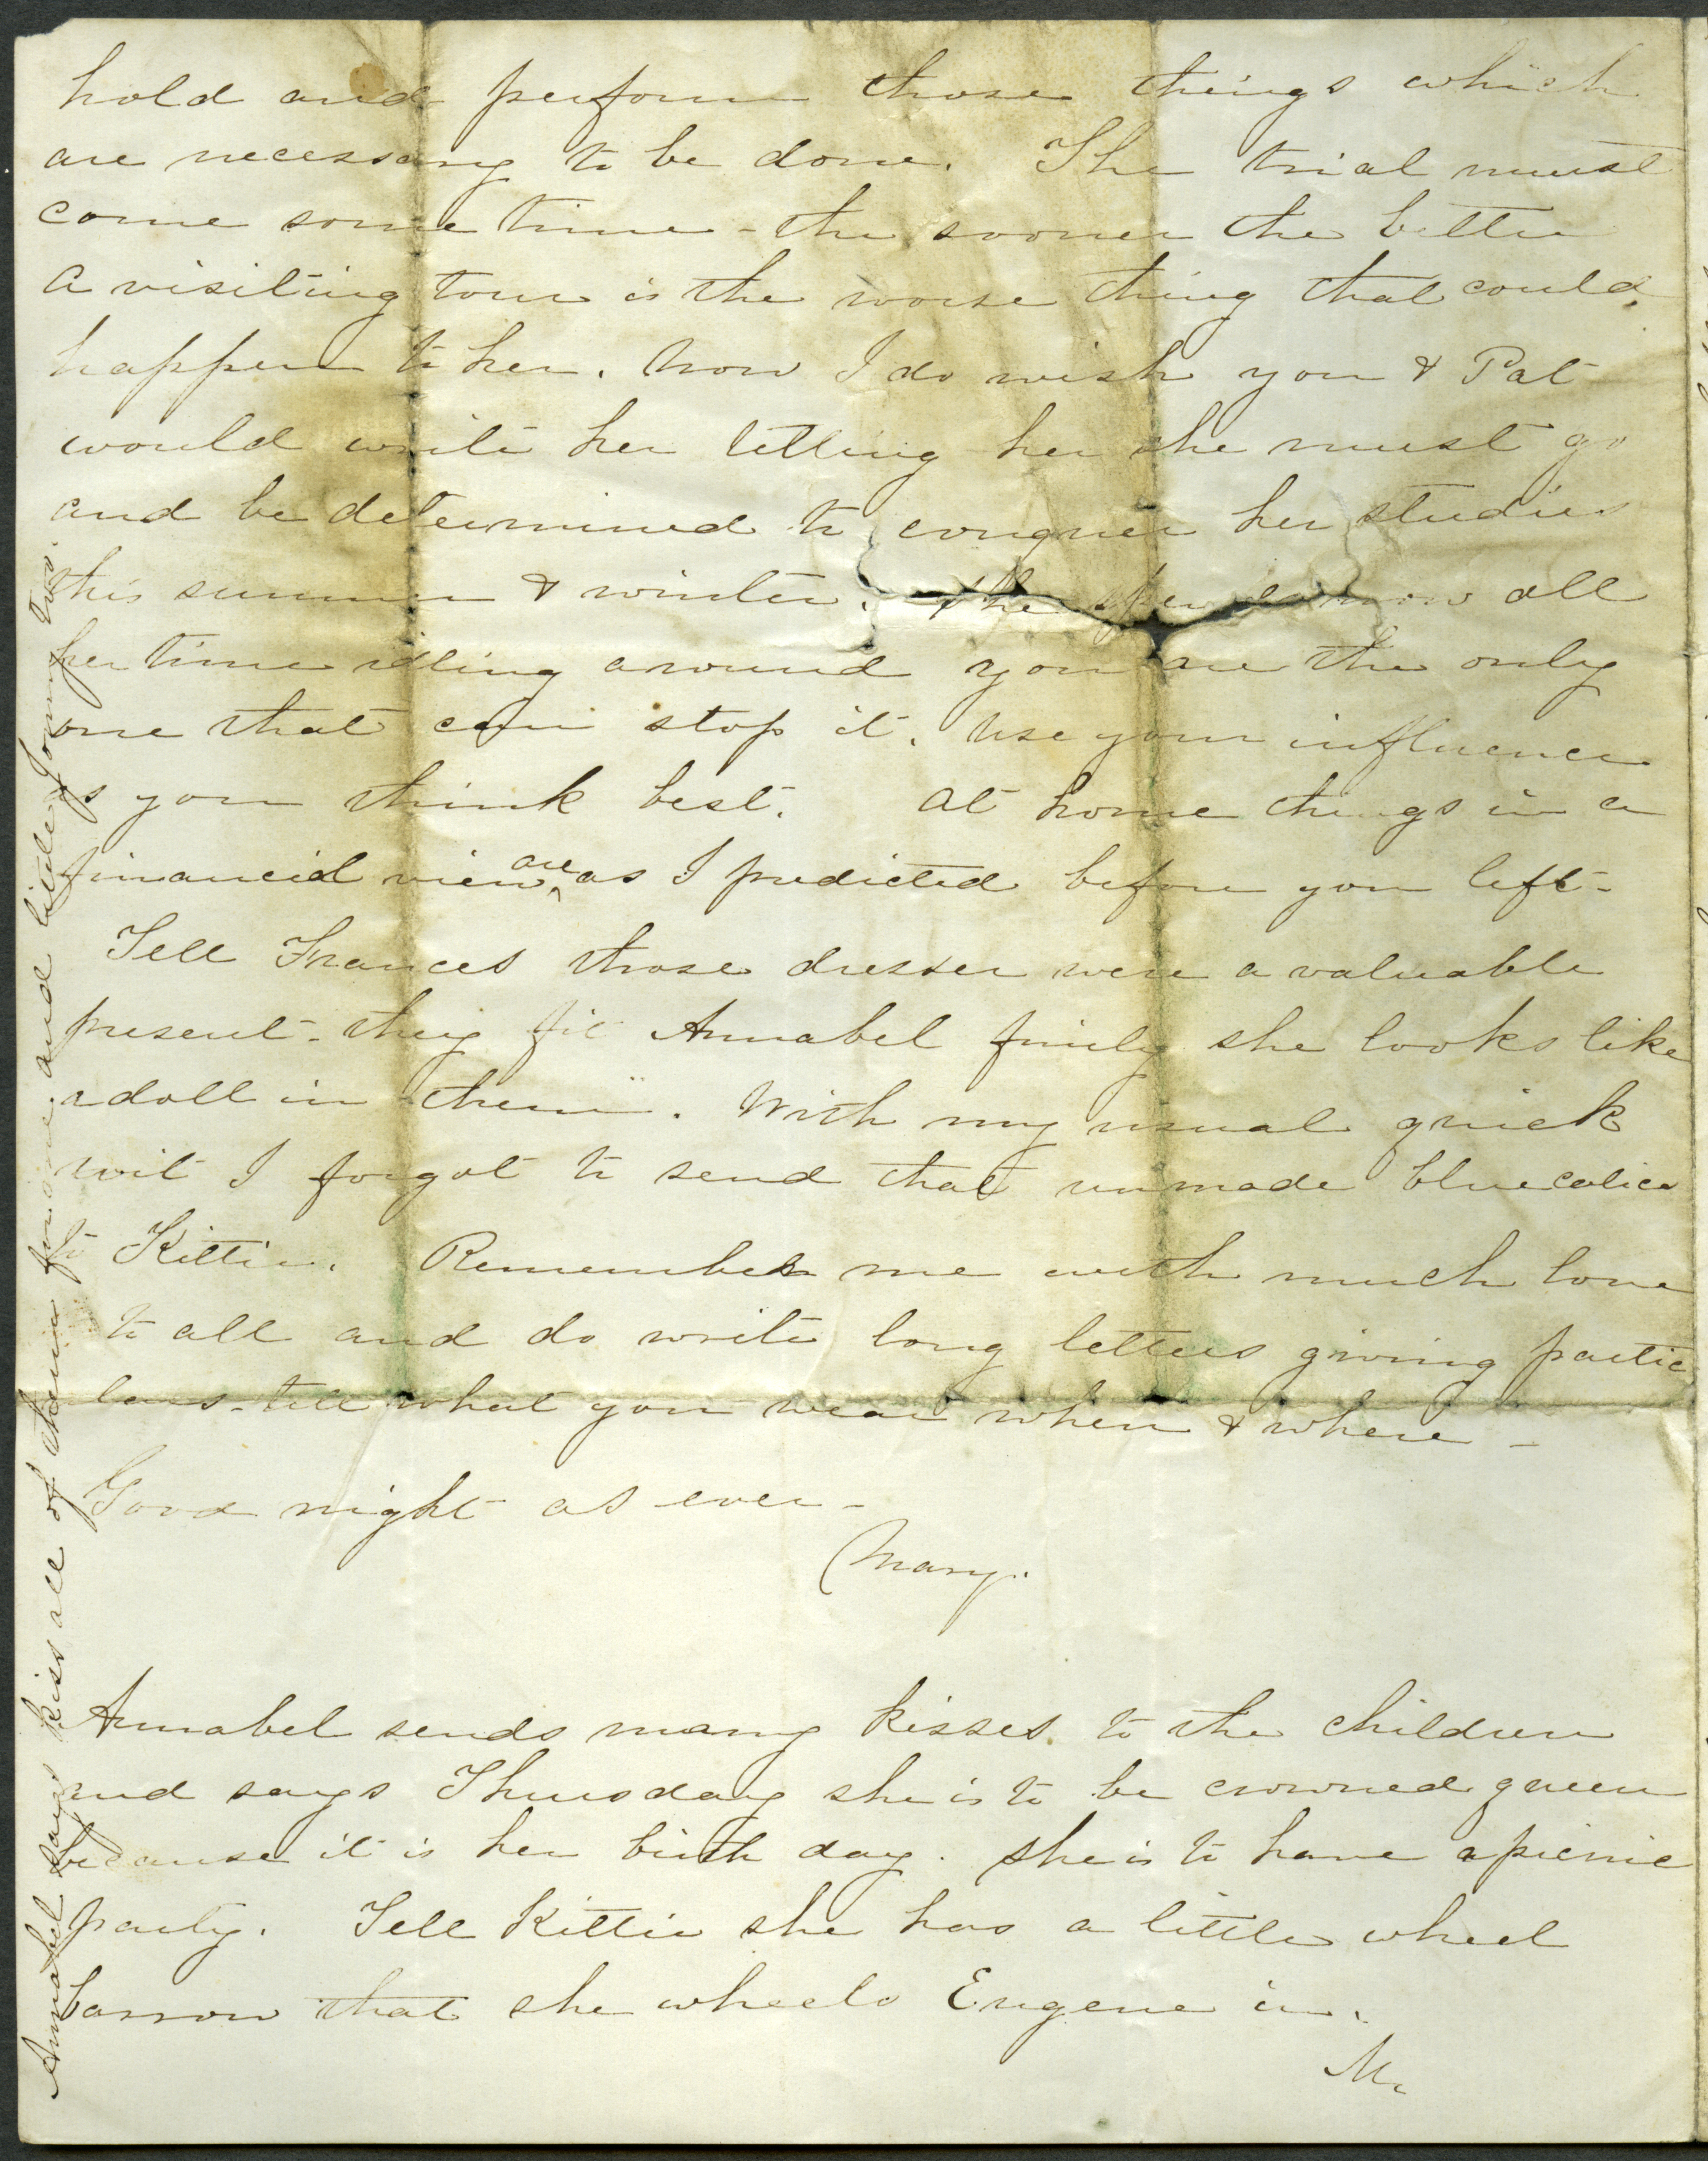 hold and perform those things which
are necessary to be done. The trial must
come some time - the sooner the better
a visiting tour is the worse thing that could
happen to her. Now I do wish you & Pat
would write her telling her she must go
and be determined to conquer her studies
this summer & winter. She spends now all
her time idling around you are the only
one that can stop it. Use your influence
as you think best. At home things in a
financial view are as I predicted before you left -
Tell Frances those dresses were a valuable
present - they fit Annabel finely she looks like
a doll in them. With my usual quick
wit I forgot to send that unmade blue calico
to Kittie. Remember me with much love
to all and do write long letters giving partic
lars - tell what you wear when & where -
Good night as ever -
Mary.
Annabel sends many kisses to the children
and says Thursday she is to be crowned queen
because it is her birth day. She is to have a picnic
party. Tell Kittie she has a little wheel
barrow that she wheels Eugene in.
M.
Annabel says kiss all of them for me and little Jonny two.